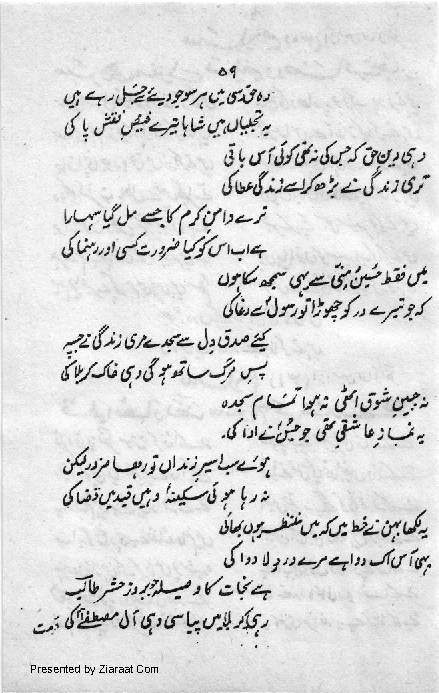 ۵۹
رہ قدسی میں ہر سو جو دیئے سے جل رہے ہیں
یہ تجلیاں ہیں شاہا تیرے فیضِ نقشِ پا کی
وہی دینِ حق کہ جس کی نہ تھی کوئی آس باقی
تری زندگی نے بڑھ کر اسے زندگی عطا کی
ترے دامنِ کرم کا جسے مل گیا سہارا
ہے اب اس کو کیا ضرورت کسی اور رہنما کی
میں فقط حُسینُ منّی سے یہی سمجھ سکا ہوں
کہ جو تیرے در کو چھوڑا تو رسولؐ سے دغا کی
کیئے صدق دل سے سجدے مری زندگی نے جسپہ
پسِ مرگ ساتھ ہوگی وہی خاک کربلا کی
نہ جبینِ شوق اٹھی نہ ہوا تمام سجدہ
یہ نمازِ عاشقی تھی جو حسینؑ نے ادا کی
ہوئے سب اسیرِ زنداں تو رہا مزور لیکن
نہ رہا ہوئی سکینہؑ وہیں قید میں قضا کی
یہ لکھا بہن نے خط میں کہ میں منتظر ہوں بھائی
یہی آس اک دوا ہے مرے درد لا دوا کی
ہے نجات کا وسیلہ جو بروز حشر طالب
رہی کربلا میں پیاسی وہی آلِ مصطفےٰؐ کی
Presented by Ziaraat.Com